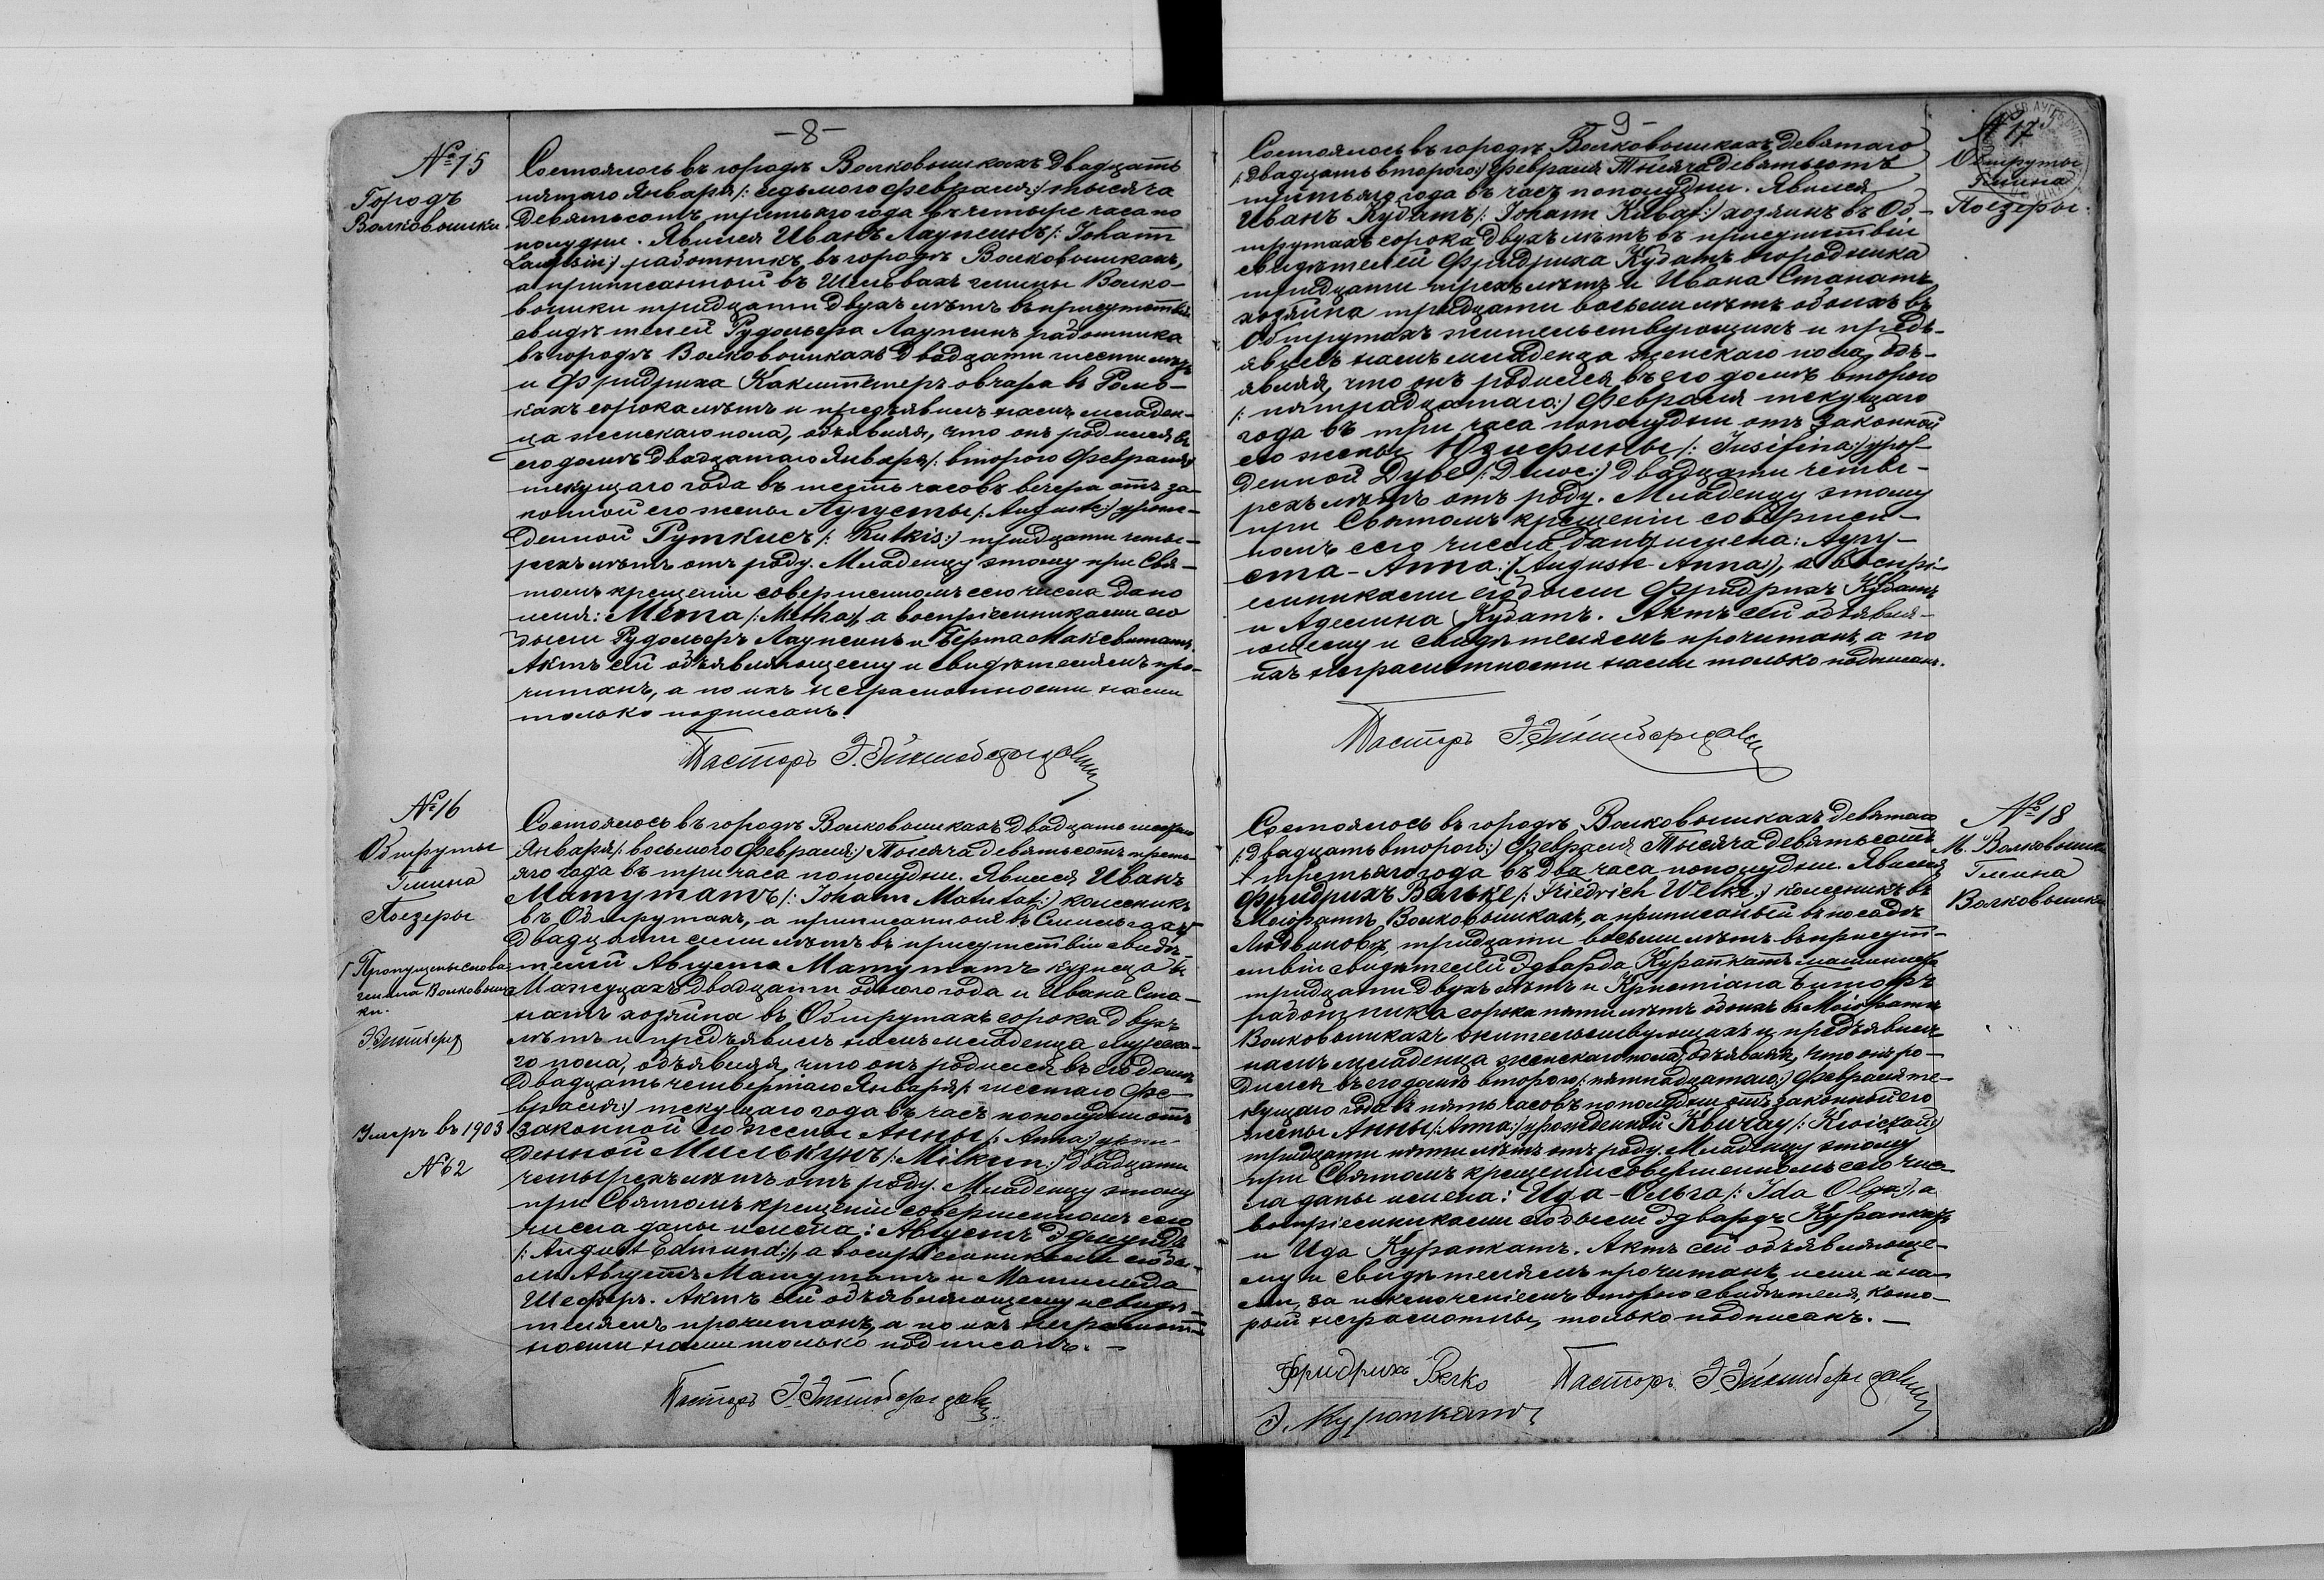 -8-
№ 15
Городъ
Волковышки.
Состоялось въ городѣ Волковышкахъ двадцать
пятаго Января /: седьмого Февраля :/ тысяча
девятьсотъ третьяго года въ четыре часа по
полудни. Явился Иванъ Лаупсинъ /: Johann
Laupsin :/ работникъ въ городѣ Волковышкахъ,
а приписанной въ Шельвахъ гмины Волко-
вышки тридцати двухъ лѣтъ въ присутствіи
свидѣтелей Рудольфа Лаупсинъ работника
въ городѣ Волковышкахъ двадцати шести лѣтъ
и Фридриха Какштеперъ овчара въ
кахъ сорока лѣтъ и предъявилъ намъ младен-
ца женскаго пола, объявляя, что онъ родился въ
его домѣ двадцатаго Января /: второго Февраля :/
текущаго года въ шесть часовъ вечера отъ за-
конной его жены Аугусты /: Auguste :/ урож-
денной Руткисъ /: Rutkis :/ тридцати четы-
рехъ лѣтъ отъ роду. Младенцу этому при Свя-
томъ крещеніи совершенномъ сего числа дано
имя: Мета /: Metha :/, а воспріемниками его
были Рудольфъ Лаупсинъ и Берта Максвитатъ.
Актъ сей объявляющему и свидѣтелямъ про-
читанъ, а по ихъ неграмотности нами
только подписанъ.
Пасторъ Э.
№ 16
Обшруты
Гмина
Поезеры
Пропущены слова:
гмина Волковыш-
ки.
Умеръ въ 1903
№ 62
Состоялось въ городѣ Волковышкахъ двадцать шестого
Января /: восьмого Февраля :/ Тысяча девятьсотъ треть-
яго года въ три часа пополудни. Явился Иванъ
Матутатъ /: Johann Matutat :/ колесникъ
въ Обшрутахъ, а приписанной въ
двадцати семи лѣтъ въ присутствіи свидѣ-
телей Августа Матутатъ кузнеца въ
Мажуцахъ двадцати одного года и Ивана Ста-
натъ хозяина въ Обшрутахъ сорока двухъ
лѣтъ и предъявилъ намъ младенца мужска-
го пола, объявляя, что онъ родился въ его домѣ
двадцать четвертаго Января /: шестаго Фе-
враля :/ текущаго года въ часъ пополудни отъ
законной его жены Анны /: Anna :/ урож-
денной Милькунъ /: Milkun :/ двадцати
четырехъ лѣтъ отъ роду. Младенцу этому
при Святомъ крещеніи совершенномъ сего
числа даны имена: Августъ Эдмундъ
/: August Edmund :/, а воспріемниками его бы-
ли Августъ Матутатъ и Матильда
Шеферъ. Актъ сей объявляющему и свидѣ-
телямъ прочитанъ, а по ихъ неграмот-
ности нами только подписанъ. —
Пасторъ Э.
-9-
№ 17
Обшруты
Гмина
Поезеры.
Состоялось въ городѣ Волковышкахъ девятаго
/: двадцать второго :/ Февраля Тысяча девятьсотъ
третьяго года въ часъ пополудни. Явился
Иванъ Кубатъ /: Johann Kubat :/ хозяинъ въ Об-
шрутахъ сорока двухъ лѣтъ въ присутствіи
свидѣтелей Фридриха Кубатъ огородника
тридцати трехъ лѣтъ и Ивана Станатъ
хозяина тридцати восьми лѣтъ обоихъ въ
Обшрутахъ жительствующихъ и предъ-
явилъ намъ младенца женскаго пола, объ-
являя, что онъ родился въ его домѣ второго
/: пятнадцатаго :/ Февраля текущаго
года въ три часа пополудни отъ законной
его жены Юзефины /: Jusifina :/ урож-
денной Дубе двадцати четы-
рехъ лѣтъ отъ роду. Младенцу этому
при Святомъ крещеніи совершен-
номъ сего числа даны имена: Аугу-
ста-Анна /: Auguste Anna :/, а воспрі-
емниками его были Фридрихъ Кубатъ
и Аделина Кубатъ. Актъ сей объявля-
ющему и свидѣтелямъ прочитанъ, а по
ихъ неграмотности нами только подписанъ.
Пасторъ Э.
№ 18
М. Волковышки
Гмина
Волковышки
Состоялось въ городѣ Волковышкахъ девятаго
/: двадцать второго :/ Февраля Тысяча девятьсотъ
третьяго года въ два часа пополудни. Явился
Фридрихъ Вельке /: Friedrich Welke :/ колесникъ въ
Маіоратѣ Волковышкахъ, а приписаный въ посадѣ
тридцати восьми лѣтъ въ присут-
ствіи свидѣтелей Эдварда Курапкатъ машиниста
тридцати двухъ лѣтъ и Христіана
работника сорока пяти лѣтъ обоихъ въ Маіоратѣ
Волковышкахъ жительствующихъ и предъявилъ
намъ младенца женскаго пола, объявляя, что онъ ро-
дился въ его домѣ второго /: пятнадцатаго :/ Февраля те-
кущаго года въ пять часовъ пополудни отъ законной его
жены Анны /: Anna :/ урожденной Квичау
тридцати пяти лѣтъ отъ роду. Младенцу этому
при Святомъ крещеніи совершенномъ сего чис-
ла даны имена: Ида-Ольга /: Ida Olga :/, а
воспріемниками его были Эдвардъ Курапкатъ
и Ида Курапкатъ. Актъ сей объявляюще-
му и свидѣтелямъ прочитанъ, ими и на-
ми, за исключеніемъ второго свидѣтеля, кото-
рый неграмотный, только подписанъ. —
Фридрихъ Велко Пасторъ Э.
Э. Курапкатъ